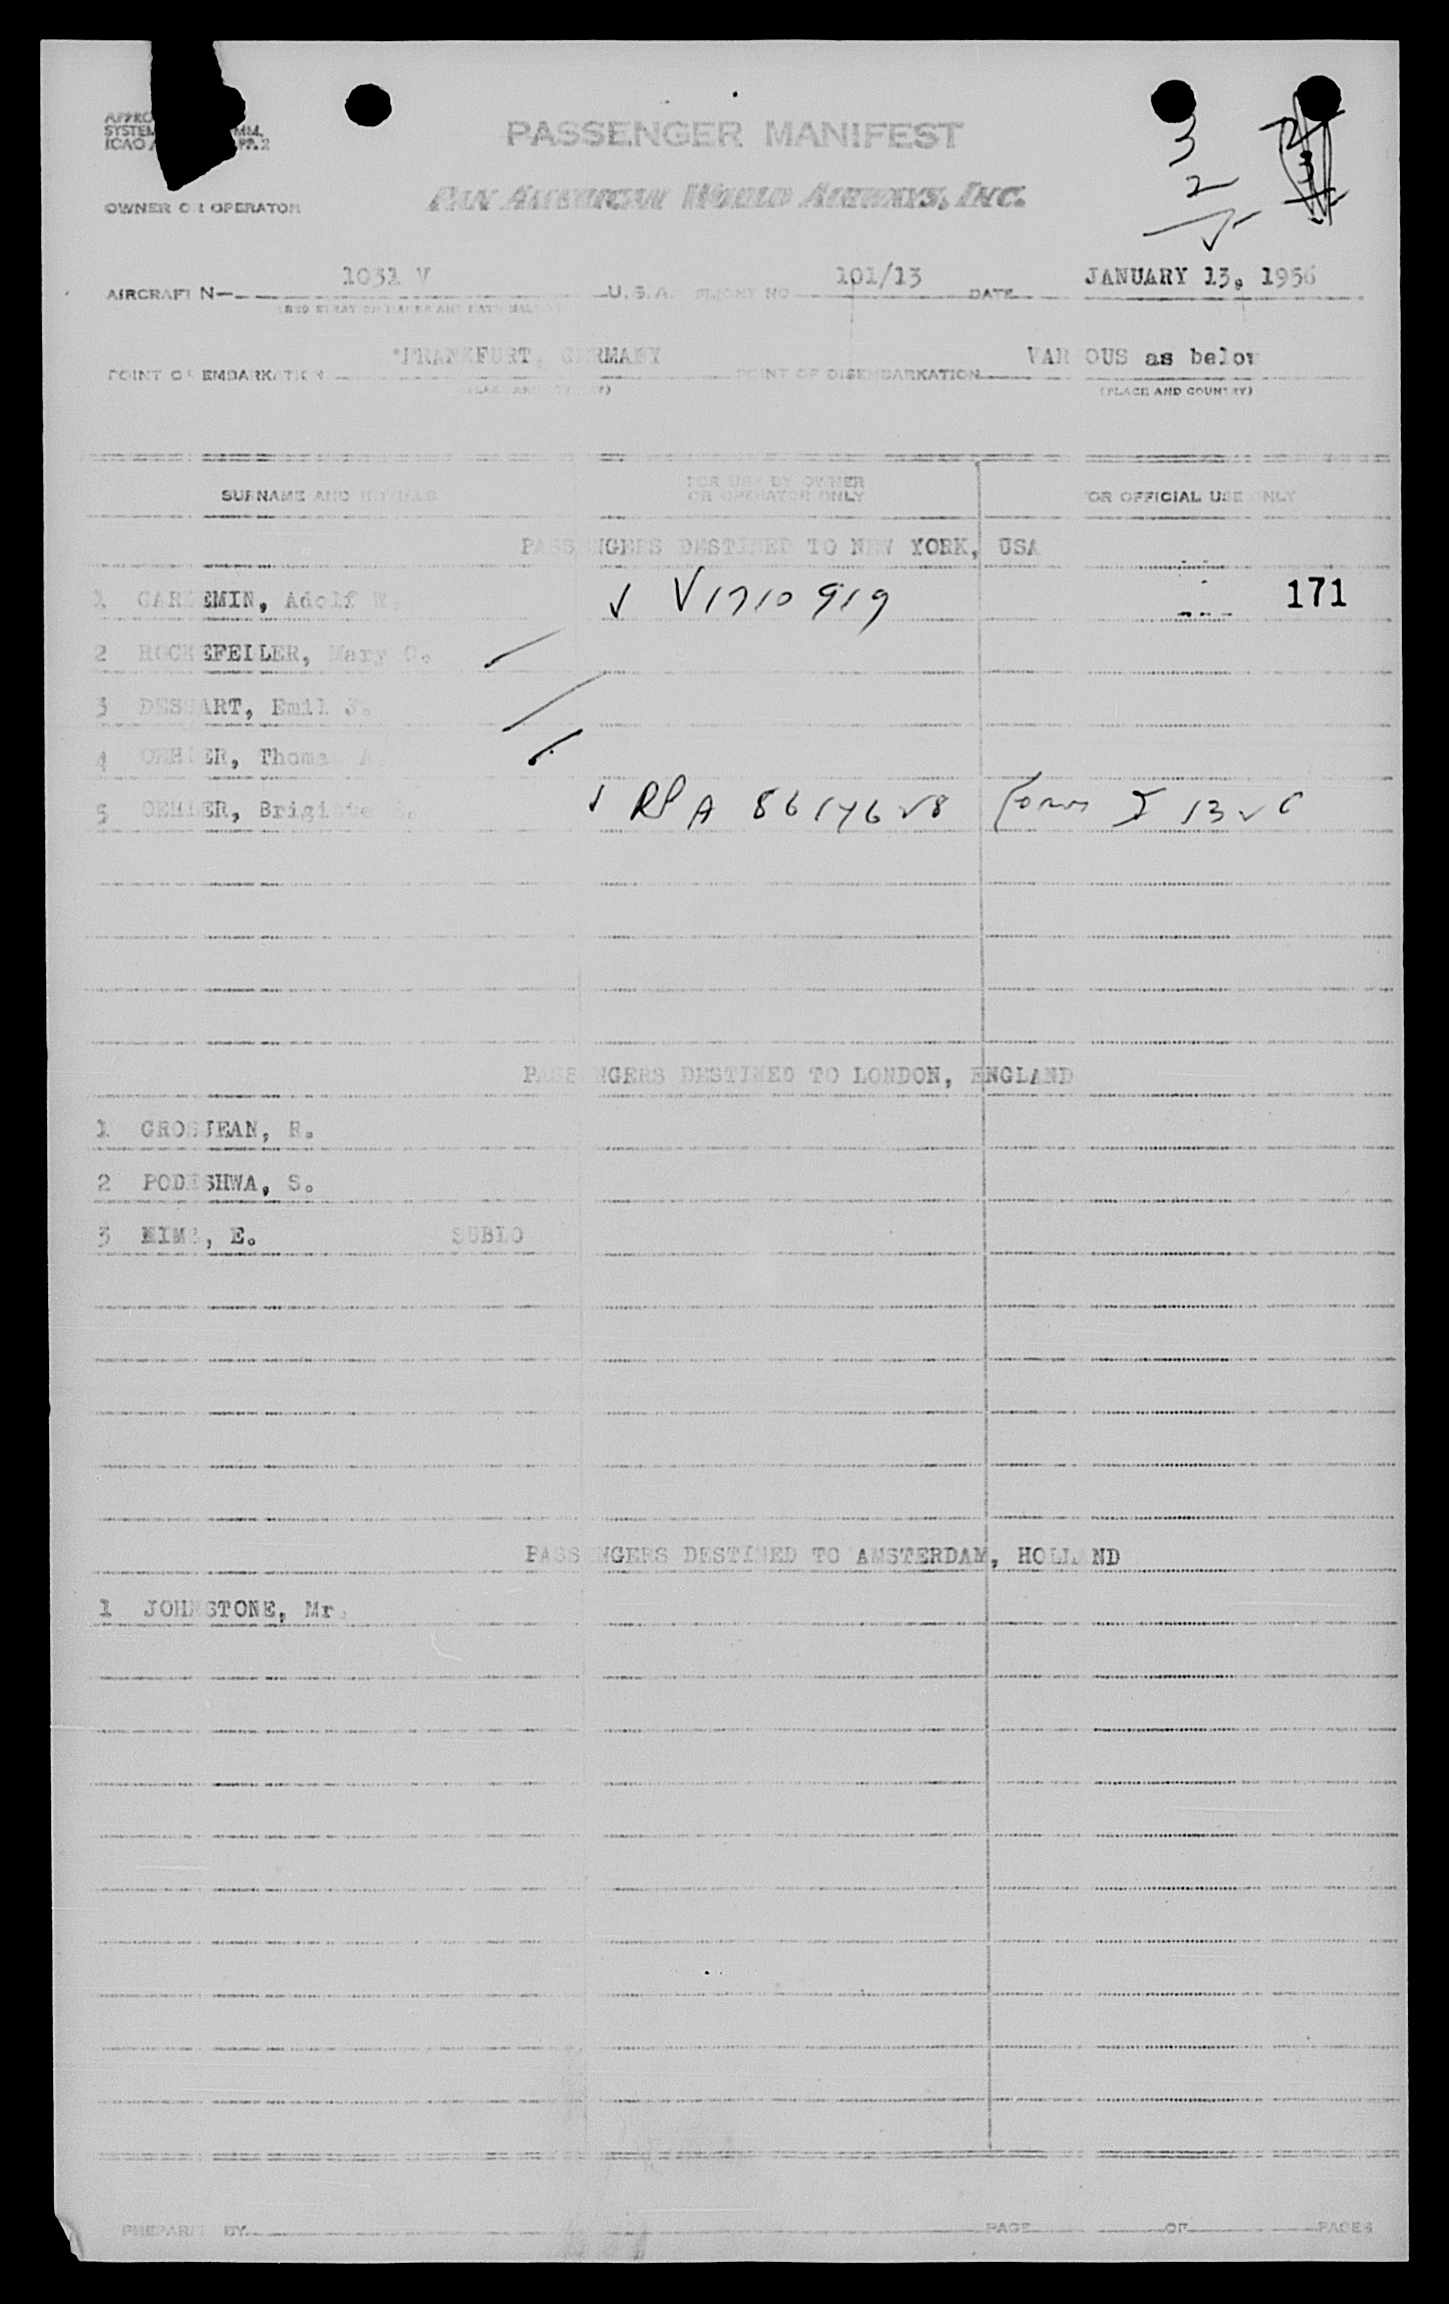 PASSENGER MANIFEST
OWNER OR OPERATOR PAN AMERICAN WORLD AIRWAYS, INC.
3
2
5
AIRCRAFT N— 1031 V U.S.A. FLIGHT NO 101/13 DATE JANUARY 13, 1956
POINT OF EMBARKATION FRANKFURT, GERMANY POINT OF DISEMBARKATION VARIOUS as below
(PLACE AND COUNTRY) (PLACE AND COUNTRY)
SURNAME AND INITIALS FOR USE BY OWNER OR OPERATOR ONLY FOR OFFICIAL USE ONLY
PASSENGERS DESTINED TO NEW YORK, USA
1 Adolf √ V1710919 171
2 ROCKEFELLER, Mary
3 DESSART, Emil J.
4 OEHLER, Thomas A.
5 OEHLER, Brigitte √ RP A Form I
PASSENGERS DESTINED TO LONDON, ENGLAND
1 GROSJEAN, R.
2 PODESHWA, S.
3 E. SUBLO
PASSENGERS DESTINED TO AMSTERDAM, HOLLAND
1 JOHNSTONE, Mr.
PREPARED BY PAGE OF PAGES